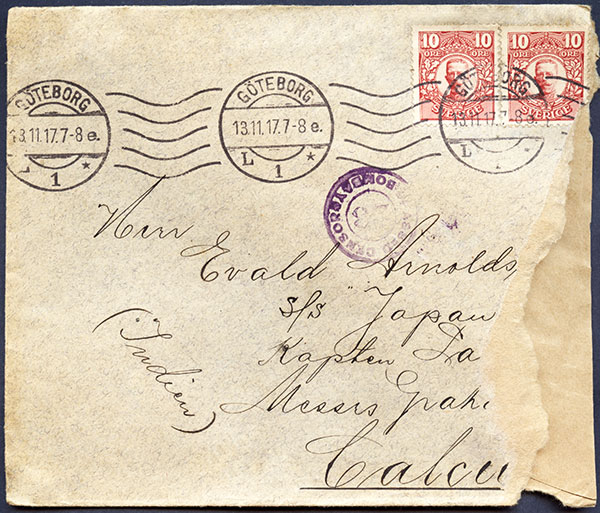 10 10 10 10
ÖRE ÖRE ÖRE ÖRE
SVERIGE SVERIGE
GÖTEBORG GÖTEBORG GÖTEBORG
13.11.17.7-8 e. 13.11.17.7-8 e. 13.11.17.7-8 e.
L 1 * L 1 * L 1 *
CENSOR BOMBAY
Herr
Evald Arnolds
S/S "Japan
Kapten Da
Messrs Grah
Calcu
(Indien)